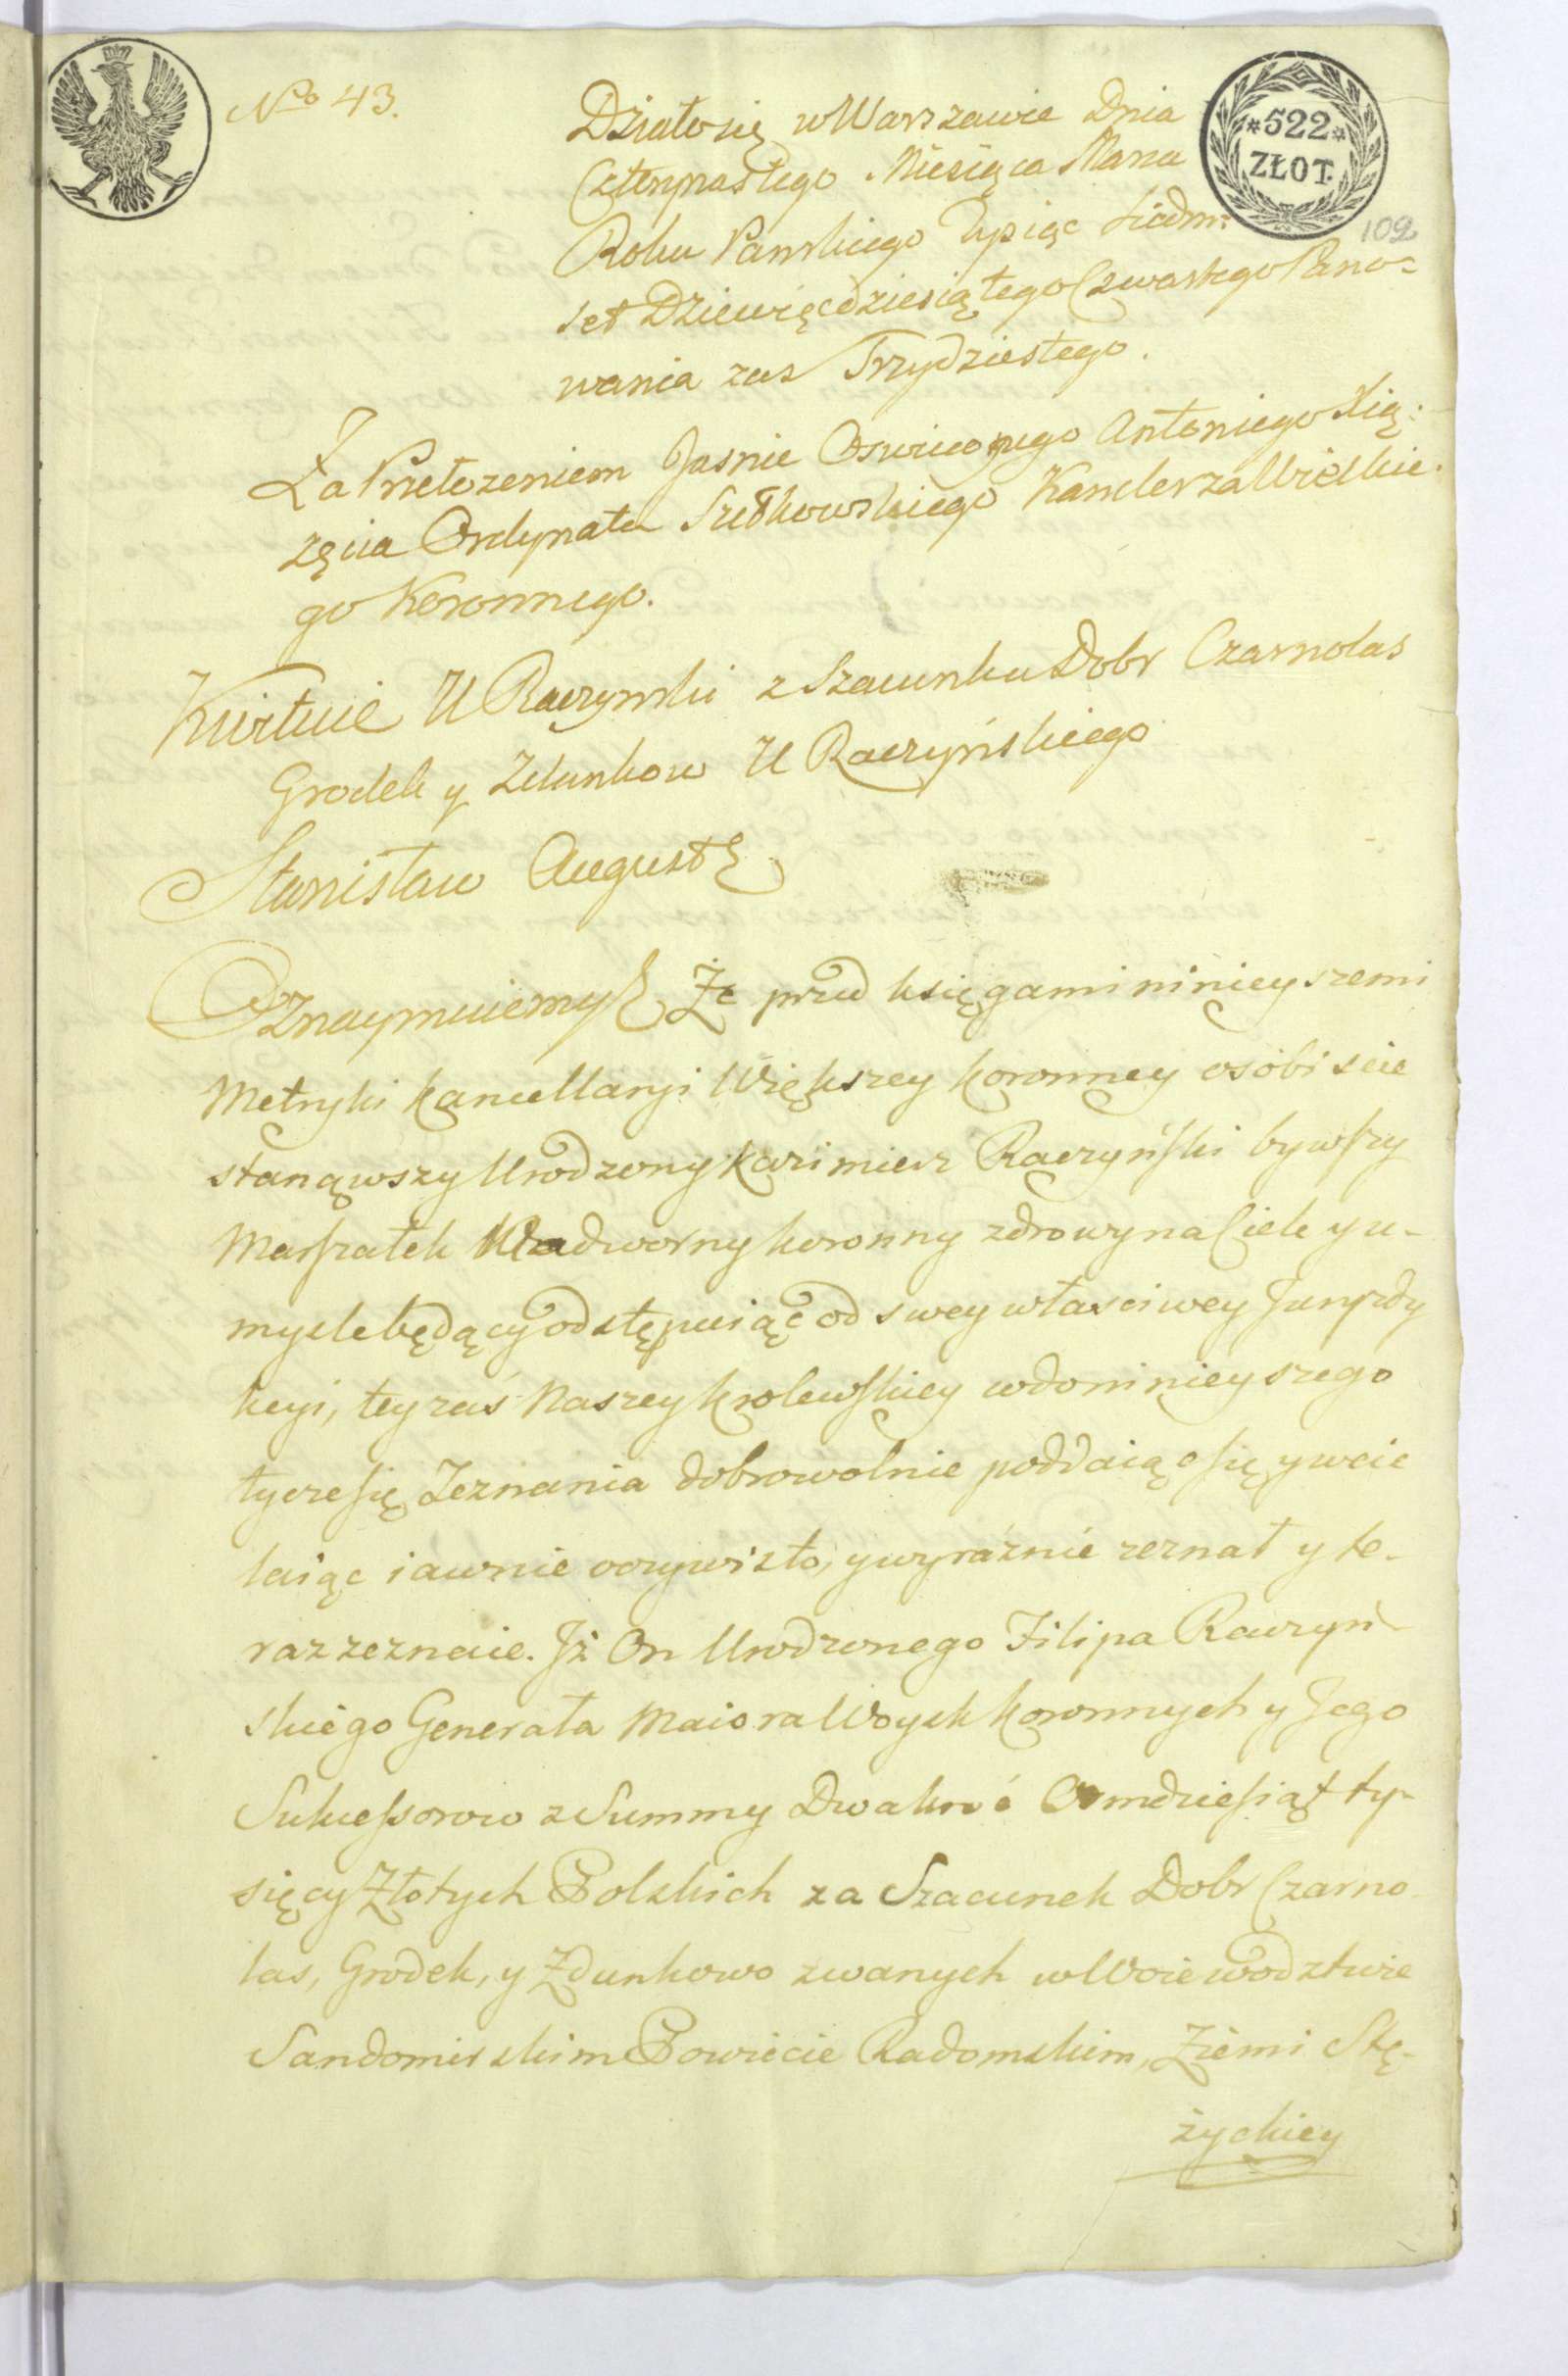 No 43.
*522*
ZŁOT.
102
Działo się w Warszawie Dnia
Czternastego Miesiąca Marca
Roku Panskiego Tysiąc Siedm:
set Dziewięcdziesiątego Czwartego Pano=
wania zas Trzydziestego.
Za Przełozeniem Jasnie Oswieconego Antoniego Xią:
zęcia Ordynata Sułkowskiego Kanclerza Wielkie:
go Koronnego.
Kwituie U Raczynski z Szacunku Dobr Czarnolas
Grodek y Zdunkow U Raczyńskiego
Stanisław August
Oznaymuiemy Że przed księgami ninieyszemi
Metryki Kancellaryi Większey Koronney osobiscie
stanąwszy Urodzony Kazimierz Raczyński bywszy
Marszałek Nadworny koronny zdrowy na Ciele y u-
mysle będący odstępuiąc od swey własciwey Juryzdy
kcyi, tey zaś Naszey Krolewskiey wdo ninieyszego
tycze się Zeznania dobrowolnie poddaiąc się y wcie
laiąc iawnie oczywisto, y wyráźnie zeznał y te-
raz zeznaie. Jż On Urodzonego Filipa Raczyń
skiego Generała Maiora Woysk Koronnych y Jego
Sukcessorow z Summy Dwakroć Osmdziesiąt ty-
sięcy Złotych Polskich za Szacunek Dobr Czarno
las, Grodek, y Zdunkowo zwanych w Woiewodztwie
Sandomirskim Powiecie Radomskim, Ziemi Stę-
życkiey